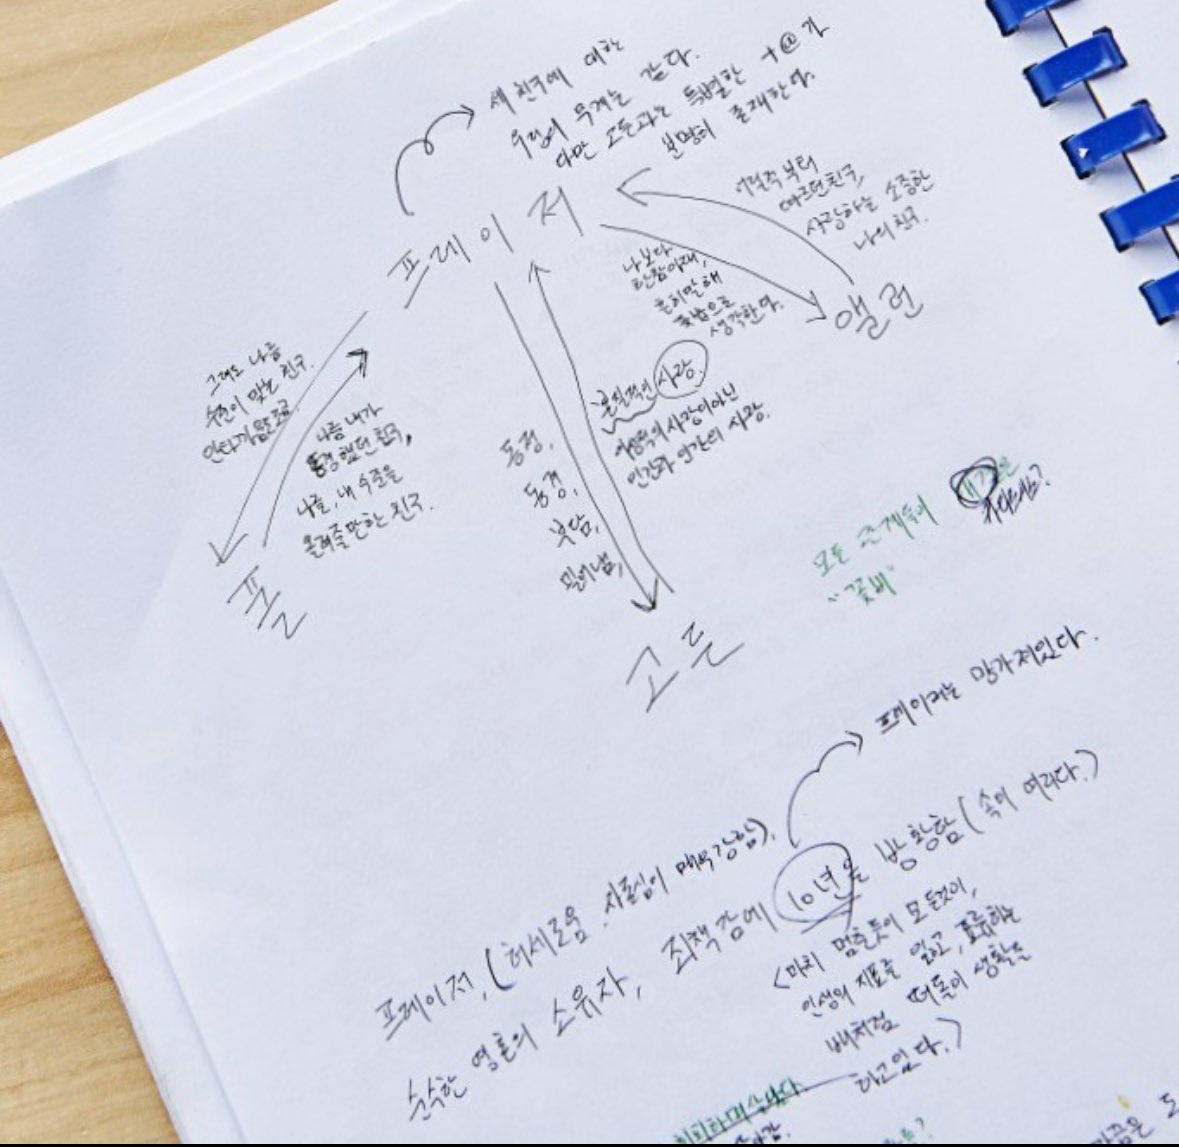 세 친구에 대한
우정의 무게는 같다.
다만 고든과는 특별한 +@가
분명히 존재한다.
프레이저
어릴적부터
따르던 친구,
사랑하는 소중한
나의 친구.
나보다
한참아래,
흔히말해
꼬붕으로
생각한다.
앨런
그래도 나름
수준이 맞는 친구.
안타까움도 조금.
나름 내가
동경했던 친구,
나를, 내 수준을
올려줄만한 친구.
폴
본질적인 사랑.
이성적 사랑이 아닌
인간과 인간의 사랑.
동정,
동경,
부담,
밀어냄,
고든
모든 관계들이
"꽃비"
프레이저는 망가져있다.
프레이저, (허세로움, 자존심이 매우 강함),
순수한 영혼의 소유자, 죄책감에 10년을 방황함 (속이 여리다.)
(마치 멈춘듯이 모든것이,
인생의 지표를 잃고, 표류하는
배처럼 떠돌이 생활을
하고있다.)
회피하며 살았다